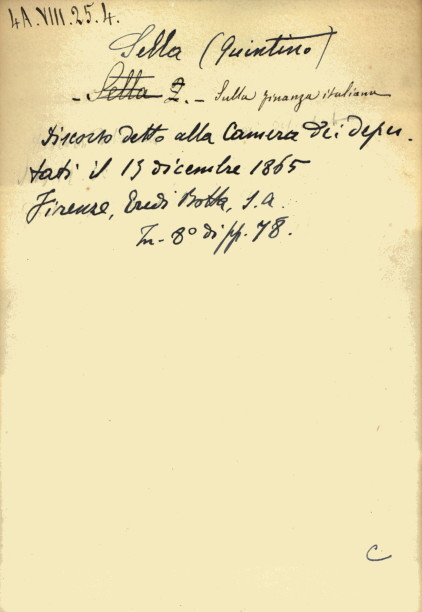 4A.VIII.25.4.
Sella (Quintino)
- Sella Q. - Sulla finanza italiana
Discorso detto alla Camera dei depu-
tati il 13 dicembre 1865
Firenze, Eredi Botta, s.a.
In-8° di pp. 78.
C